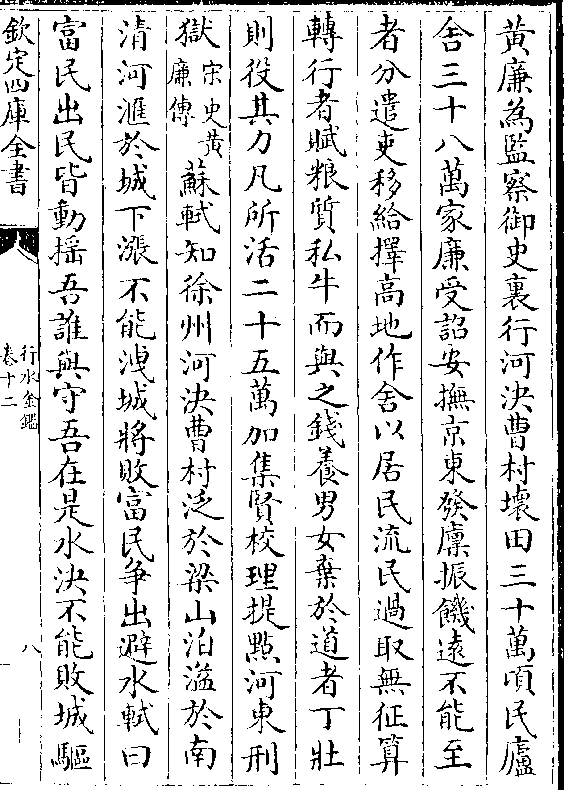 黄廉為監察御史裏行河決曹村壞田三十萬頃民廬
舍三十八萬家廉受詔安撫京東發廪振饑逺不能至
者分遣吏移給擇高地作舍以居民流民過取無征算
轉行者賦粮質私牛而與之錢養男女棄於道者丁壯
則役其力凡所活二十五萬加集賢校理提㸃河東刑
獄
宋史黄
廉傳
蘇軾知徐州河決曹村泛於梁山泊溢於南
清河滙於城下漲不能洩城將敗富民争出避水軾曰
富民出民皆動揺吾誰與守吾在是水決不能敗城驅
欽定四庫全書
行水金鑑
卷十二
八